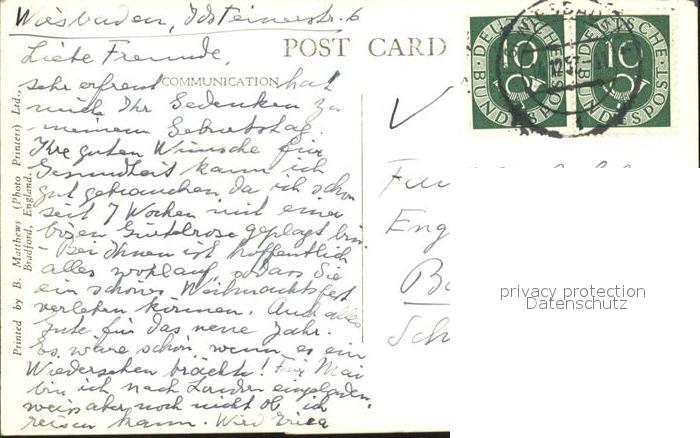 Wiesbaden, Idsteinerstr. 6
Liebe Freunde,
POST CARD
COMMUNICATION
sehr erfreut hat
mich Ihr Gedenken zu
meinem Geburtstag.
Ihre guten Wünsche für
Gesundheit kann ich
gut gebrauchen da ich schon
seit 7 Wochen mit einer
bösen Gürtelrose geplagt bin.
- Bei Ihnen ist hoffentlich
alles wohlauf, sodass Sie
ein schönes Weihnachtsfest
verleben können. Auch alles
Gute für das neue Jahr.
Es wäre schön wenn es ein
Wiedersehen brächte! Für Mai
bin ich nach London eingeladen,
weiss aber noch nicht ob ich
reisen kann.
Printed by B. Matthews (Photo Printers) Ltd.,
Bradford, England.
DEUTSCHE
BUNDESPOST
10
DEUTSCHE
BUNDESPOST
10
Fam
Eng
Schw
privacy protection
Datenschutz